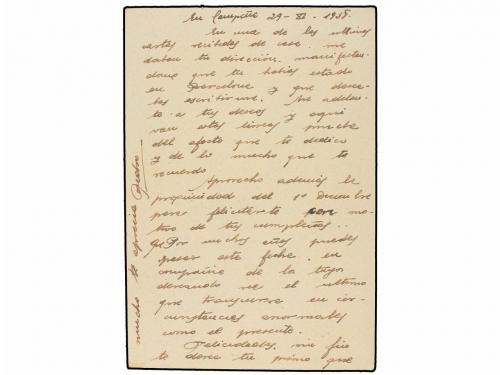 En Campaña 29-XI-1938.
En una de las ultimas
cartas recibidas de casa, me
daban tu dirección, manifestan-
dome que tu habias estado
en Barcelona y que desea-
bas escribirme. Me adelan-
to a tus deseos y aqui
van estas lineas prueba
del afecto que te dedico
y de lo mucho que te
recuerdo.
Aprovecho ademas la
proximidad del 1º Diciembre
para felicitarte por mo-
tivo de tus cumpleaños..
Por muchos años puedas
pasar esta fecha, en
compañia de los tuyos
deseando sea el ultimo
que transcurra en cir-
cunstancias anormales
como el presente.
Felicidades, mi fiel
te desea tu primo que
mucho te aprecia Pedro